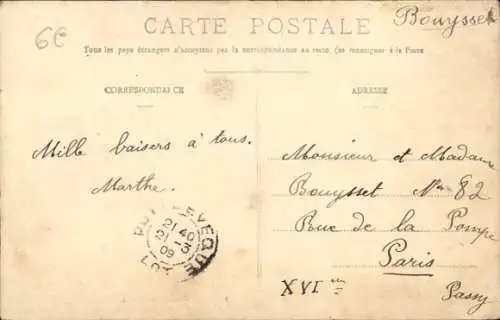 6€
CARTE POSTALE
Bouysset
Tous les pays étrangers n'acceptent pas la correspondance au recto (se renseigner à la Poste
CORRESPONDANCE
ADRESSE
Mille baisers à tous.
Marthe.
PUY-L'EVEQUE
21 40
21 - 1
09
LOT
Monsieur et Madame
Bouysset Nº 82
Rue de la Pompe
Paris
XVIem
Passy